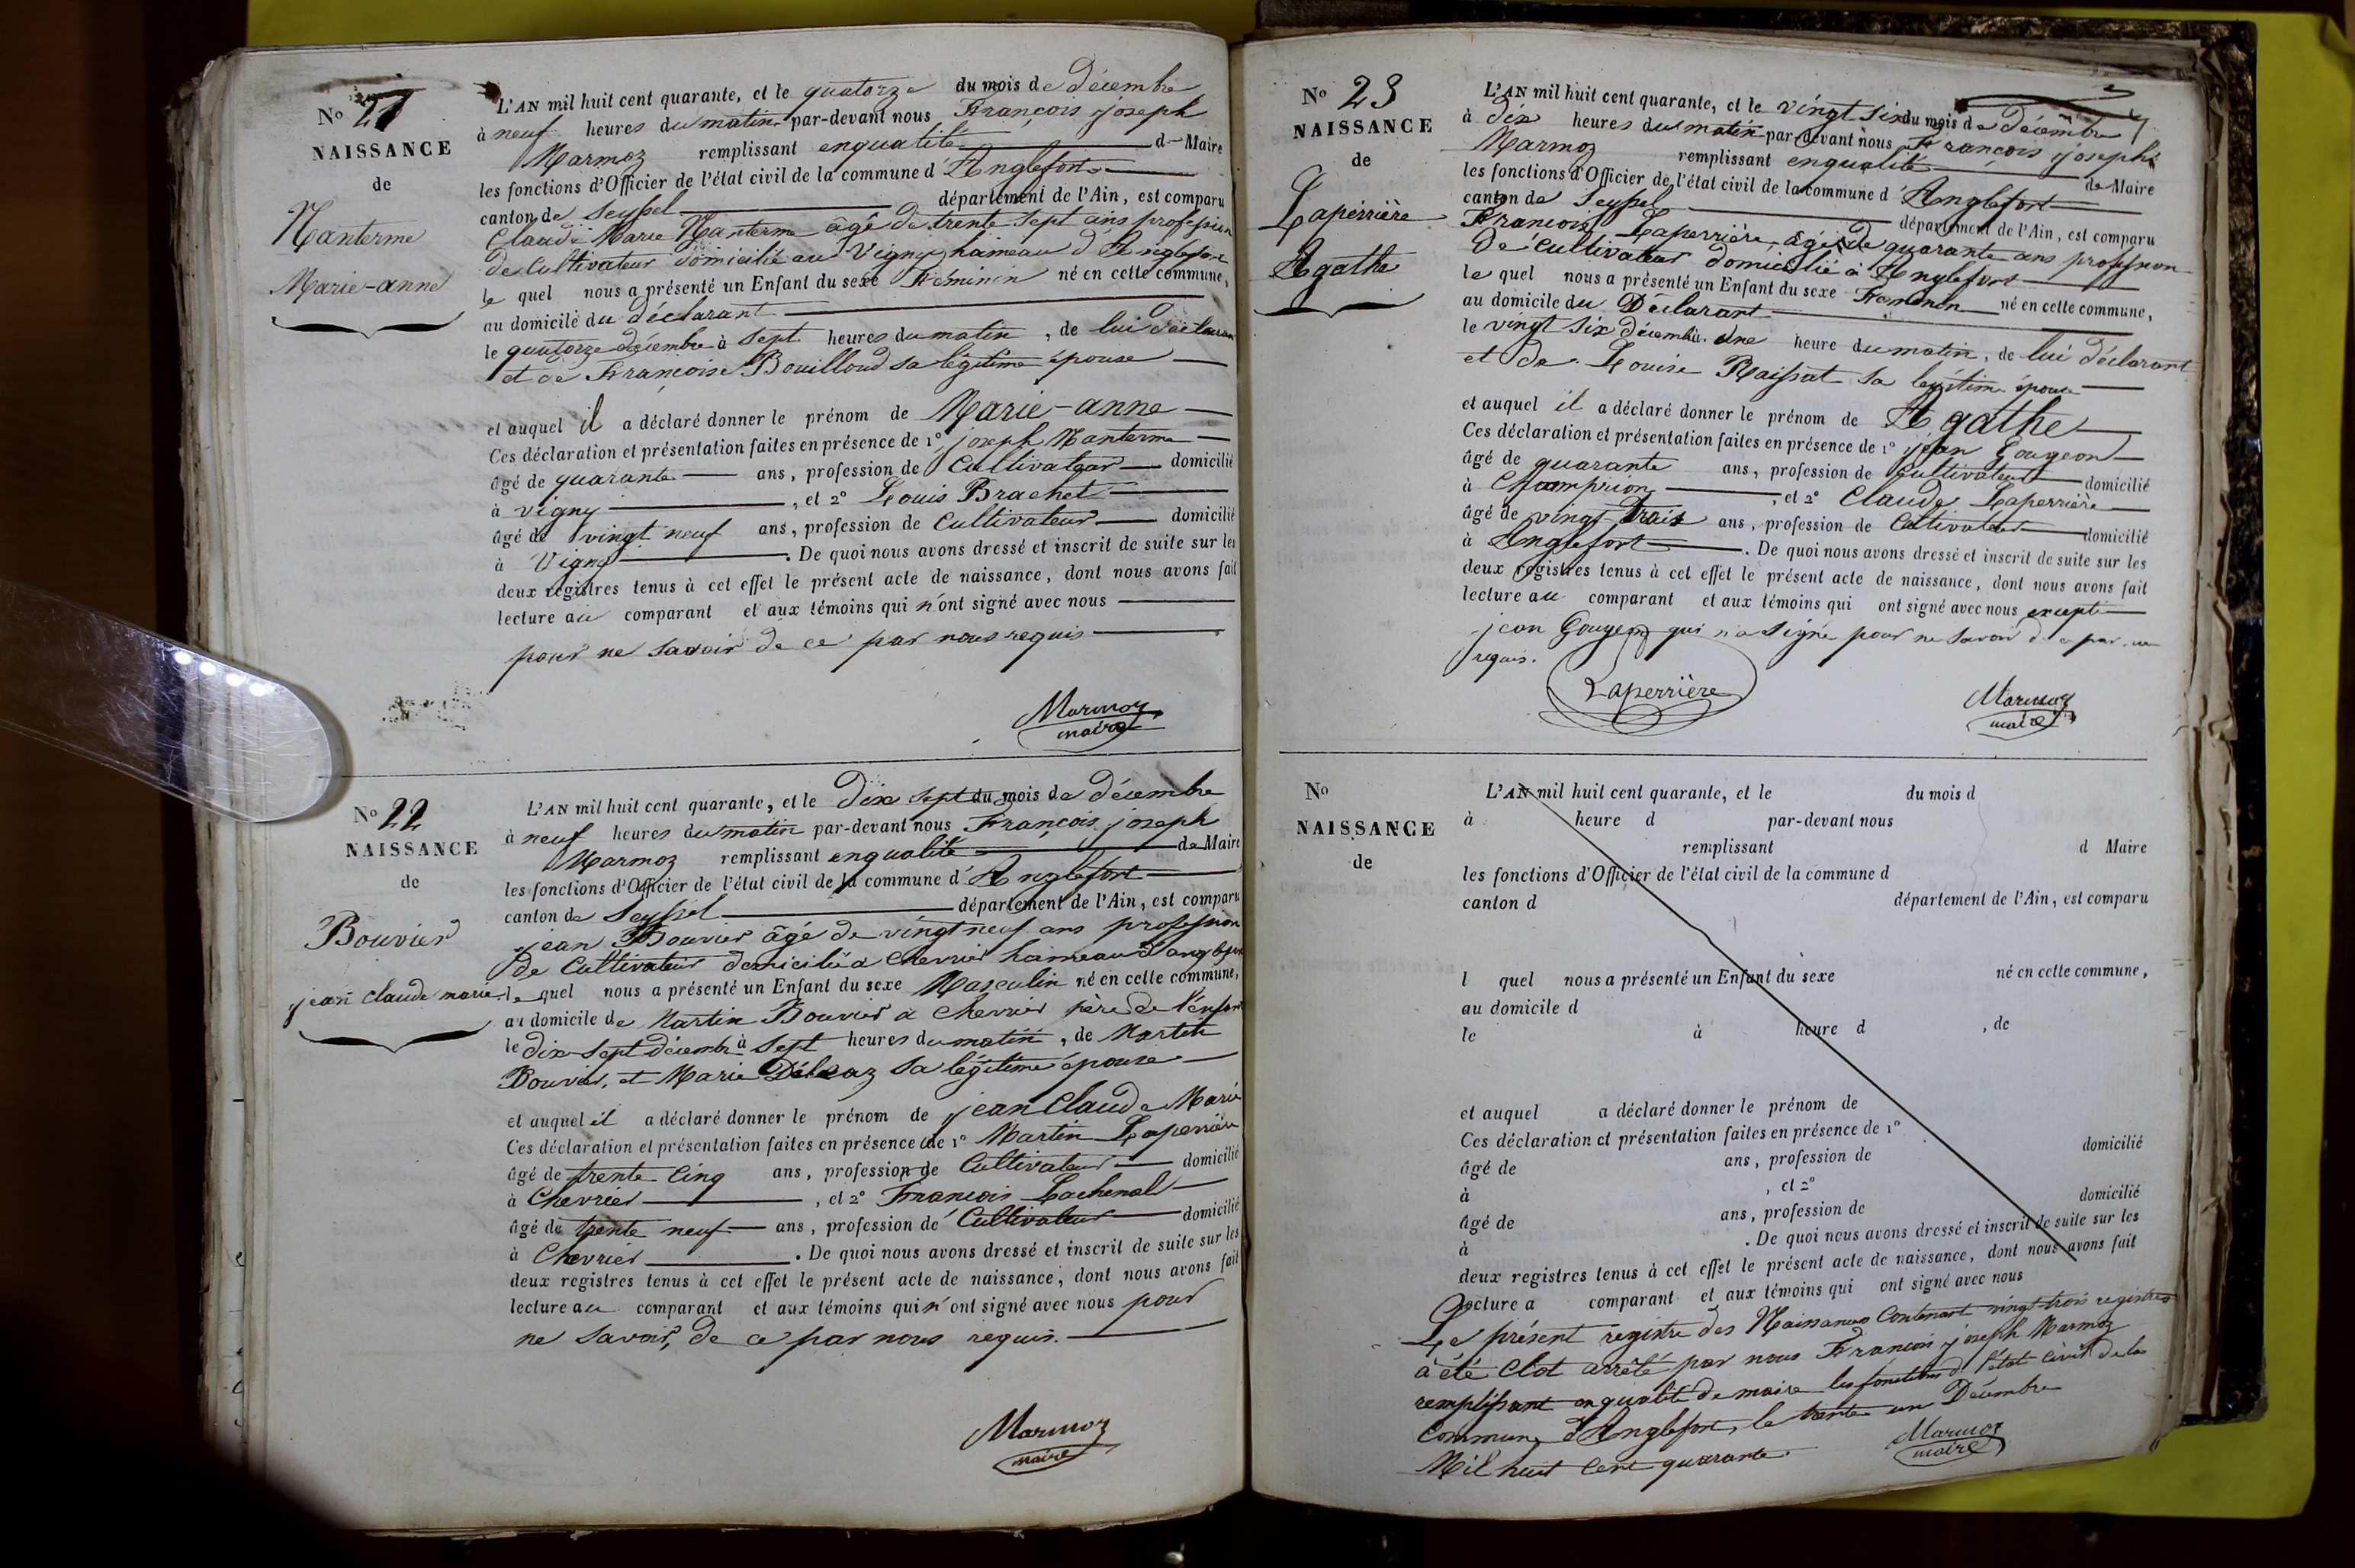 N.º 21
NAISSANCE
de
Nanterme
Marie-anne
L'AN mil huit cent quarante, et le quatorze du mois de décembre
à neuf heures du matin par-devant nous François joseph
Marmoz remplissant enqualité de Maire
les fonctions d'Officier de l'état civil de la commune d'Anglefort
canton de Seyssel département de l'Ain, est comparu
Claude Marie Nanterme âgé de trente sept ans profession
de Cultivateur domicilié au Vigny hameau d'Anglefort
le quel nous a présenté un Enfant du sexe Féminin né en cette commune,
au domicile du déclarant
le quatorze décembre à sept heures du matin, de lui déclarant
et de Françoise Bouilloud sa légitime épouse
et auquel il a déclaré donner le prénom de Marie-anne
Ces déclaration et présentation faites en présence de 1º joseph Nanterme
âgé de quarante ans, profession de Cultivateur domicilié
à Vigny, et 2º Louis Brachet
âgé de vingt neuf ans, profession de Cultivateur domicilié
à Vigny. De quoi nous avons dressé et inscrit de suite sur les
deux registres tenus à cet effet le présent acte de naissance, dont nous avons fait
lecture au comparant et aux témoins qui n'ont signé avec nous
pour ne savoir de ce par nous requis
Marmoz
maire
N.º 22
NAISSANCE
de
Bouvier
jean claude marie
L'AN mil huit cent quarante, et le Dix sept du mois de décembre
à neuf heures du matin par-devant nous François joseph
Marmoz remplissant enqualité de Maire
les fonctions d'Officier de l'état civil de la commune d'Anglefort
canton de Seyssel département de l'Ain, est comparu
jean Bouvier âgé de vingt neuf ans profession
de Cultivateur domicilié a Chevrier hameau d'anglefort
le quel nous a présenté un Enfant du sexe Masculin né en cette commune,
au domicile de Martin Bouvier a Chevrier père de l'enfant
le dix-sept décembre à sept heures du matin, de Martin
Bouvier, et Marie sa légitime épouse
et auquel il a déclaré donner le prénom de jean Claude Marie
Ces déclaration et présentation faites en présence de 1º Martin Laperrière
âgé de trente Cinq ans, profession de Cultivateur domicilié
à Chevrier, et 2º François Lachenal
âgé de trente neuf ans, profession de Cultivateur domicilié
à Chevrier. De quoi nous avons dressé et inscrit de suite sur les
deux registres tenus à cet effet le présent acte de naissance, dont nous avons fait
lecture au comparant et aux témoins qui n'ont signé avec nous pour
ne savoir, de ce par nous requis.
Marmoz
maire
N.º 23
NAISSANCE
de
Laperrière
Agathe
L'AN mil huit cent quarante, et le vingt six du mois de décembre
à dix heures du matin par-devant nous François joseph
Marmoz remplissant enqualité de Maire
les fonctions d'Officier de l'état civil de la commune d'Anglefort
canton de Seyssel département de l'Ain, est comparu
François Laperrière, âgé de quarante ans profession
de Cultivateur domicilié à Anglefort
le quel nous a présenté un Enfant du sexe Feminin né en cette commune,
au domicile du Déclarant
le vingt six décembre une heure du matin, de lui déclarant
et de Louise Raissat sa legitime épouse
et auquel il a déclaré donner le prénom de Agathe
Ces déclaration et présentation faites en présence de 1º jean Gougeon
âgé de quarante ans, profession de Cultivateur domicilié
à Champrion, et 2º Claude Laperrière
âgé de vingt trois ans, profession de Cultivateur domicilié
à Anglefort. De quoi nous avons dressé et inscrit de suite sur les
deux registres tenus à cet effet le présent acte de naissance, dont nous avons fait
lecture au comparant et aux témoins qui ont signé avec nous excepté
jean Gougeon qui n'a signé pour ne savoir de ce par
requis.
Laperrière
Marmoz
maire
N.º
NAISSANCE
de
L'AN mil huit cent quarante, et le du mois d
à heure d par-devant nous
remplissant d Maire
les fonctions d'Officier de l'état civil de la commune d
canton d département de l'Ain, est comparu
l quel nous a présenté un Enfant du sexe né en cette commune,
au domicile d
le à heure d , de
et auquel a déclaré donner le prénom de
Ces déclaration et présentation faites en présence de 1º
âgé de ans, profession de domicilié
à , et 2º
âgé de ans, profession de domicilié
à . De quoi nous avons dressé et inscrit de suite sur les
deux registres tenus à cet effet le présent acte de naissance, dont nous avons fait
lecture a comparant et aux témoins qui ont signé avec nous
Le présent registre des Naissances Contenant vingt-trois registres
à été Clot arrêté par nous François joseph Marmoz
remplissant enqualité de maire les fonctions d l'état civil de la
Commune d'Anglefort, le trente un Décembre
Mil huit Cent quarante.
Marmoz
maire